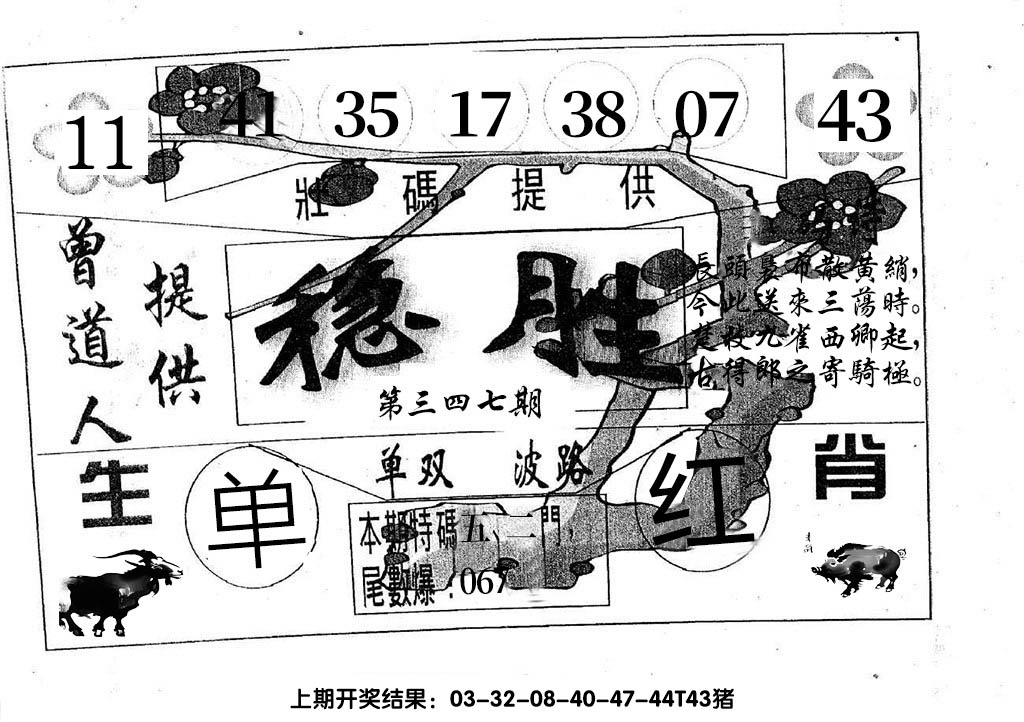 11 41 35 17 38 07 43
壯碼提供
曾道人
提供
稳胜
第三四七期
長頭髮布散黃綃，
今此送來三蕩時。
楚枝九雀西卿起，
古得郎之寄騎極。
单双 波路
生肖
单
红
本期特碼五、二門，
尾數爆：067
上期开奖结果：03-32-08-40-47-44T43猪